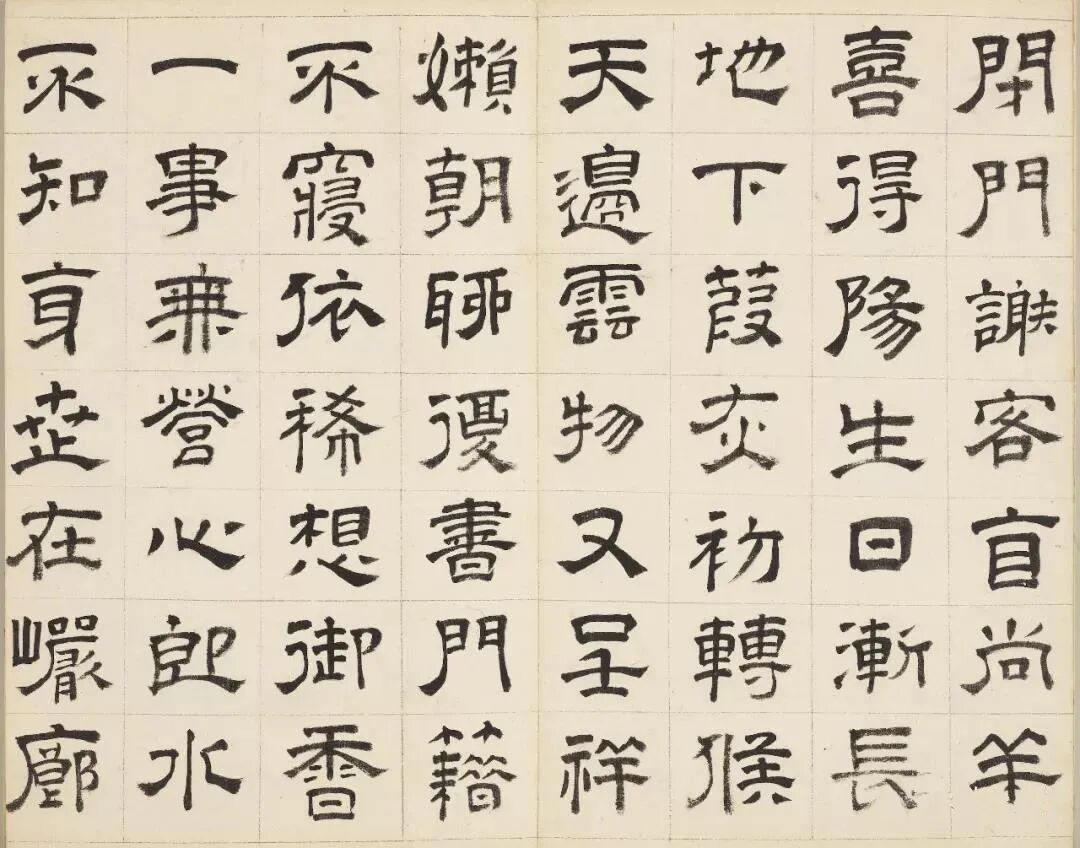 閉門謝客盲尚羊
喜得陽生日漸長
地下葭灰初轉候
天邊雲物又呈祥
嬾朝聊復書門籍
不寢依稀想御香
一事無營心即水
不知身世在巖廊